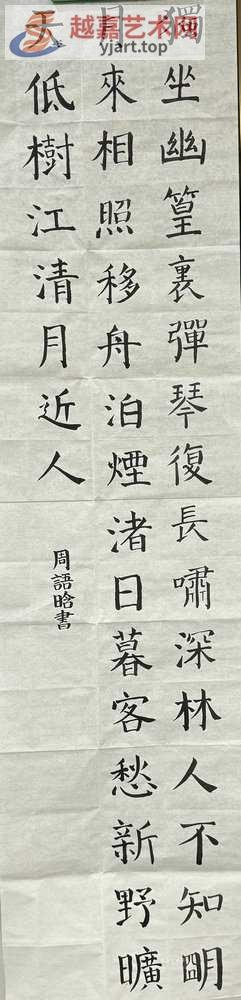 越嘉艺术网
yjart.top
獨坐幽篁裏彈琴復長嘯深林人不知明
月來相照移舟泊煙渚日暮客愁新野曠
天低樹江清月近人
周語晗書